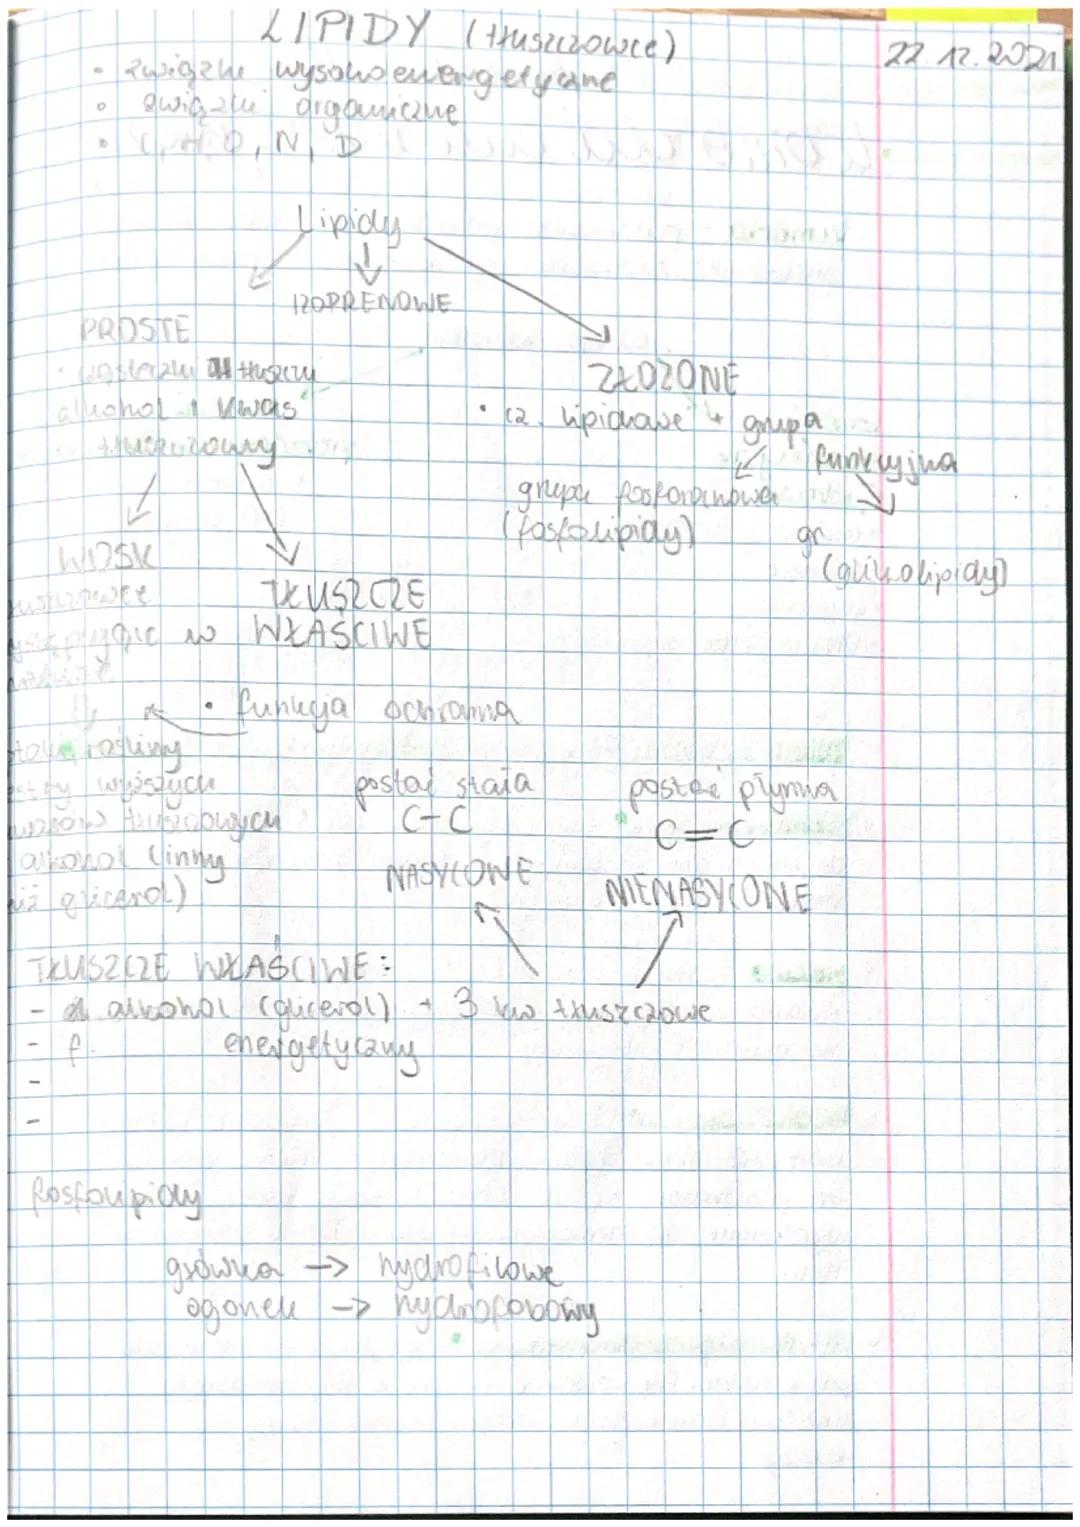 LIPIDY (tłuszczowce)
22.12.2021
• związki wysokoenergetyczne
• związki organiczne
• C, H, O, N, D
Lipidy
IZOPRENOWE
PROSTE
ZŁOŻONE
• cząsteczki tłuszczu
alkohol i kwas
tłuszczowy
• cz. lipidowe + grupa
funkcyjna
grupa fosforanowa
(fosfolipidy)
gr
(glikolipidy)
WOSK
TŁUSZCZE
WŁAŚCIWE
w
• funkcja ochronna
rośliny
wyższych
tłuszczowych
alkohol (inny
niż glicerol)
postać stała
C-C
NASYCONE
postać płynna
C=C
NIENASYCONE
TŁUSZCZE WŁAŚCIWE:
- alkohol (glicerol) + 3 kw tłuszczowe
- f. energetyczny
-
-
fosfolipidy
główka -> hydrofilowe
ogonek -> hydrofobowy